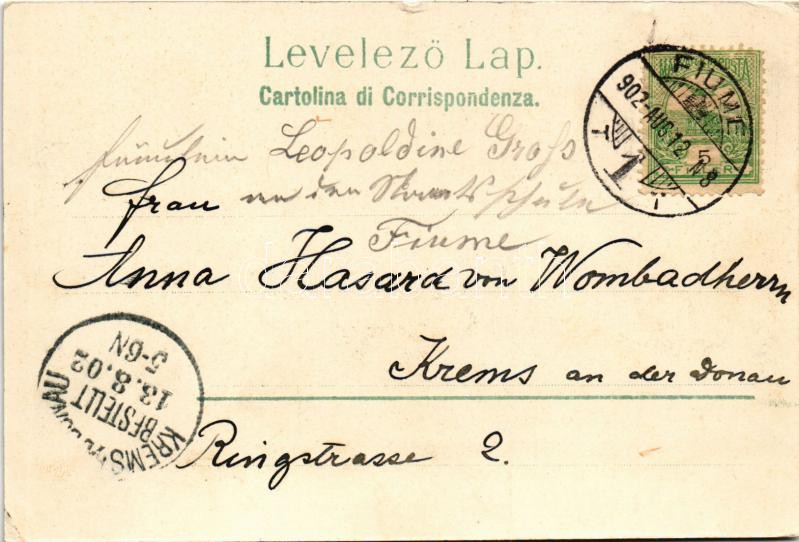 Levelezö Lap.
Cartolina di Corrispondenza.
Fräulein Leopoldine Groß
an der Staatsschule
Fiume
Frau
Anna Hasard von Wombadherrn
Krems an der Donau
Ringstrasse 2.
FIUME
902-AUG.12
N8
1
KREMS
BESTELLT
13.8.02
5-6N